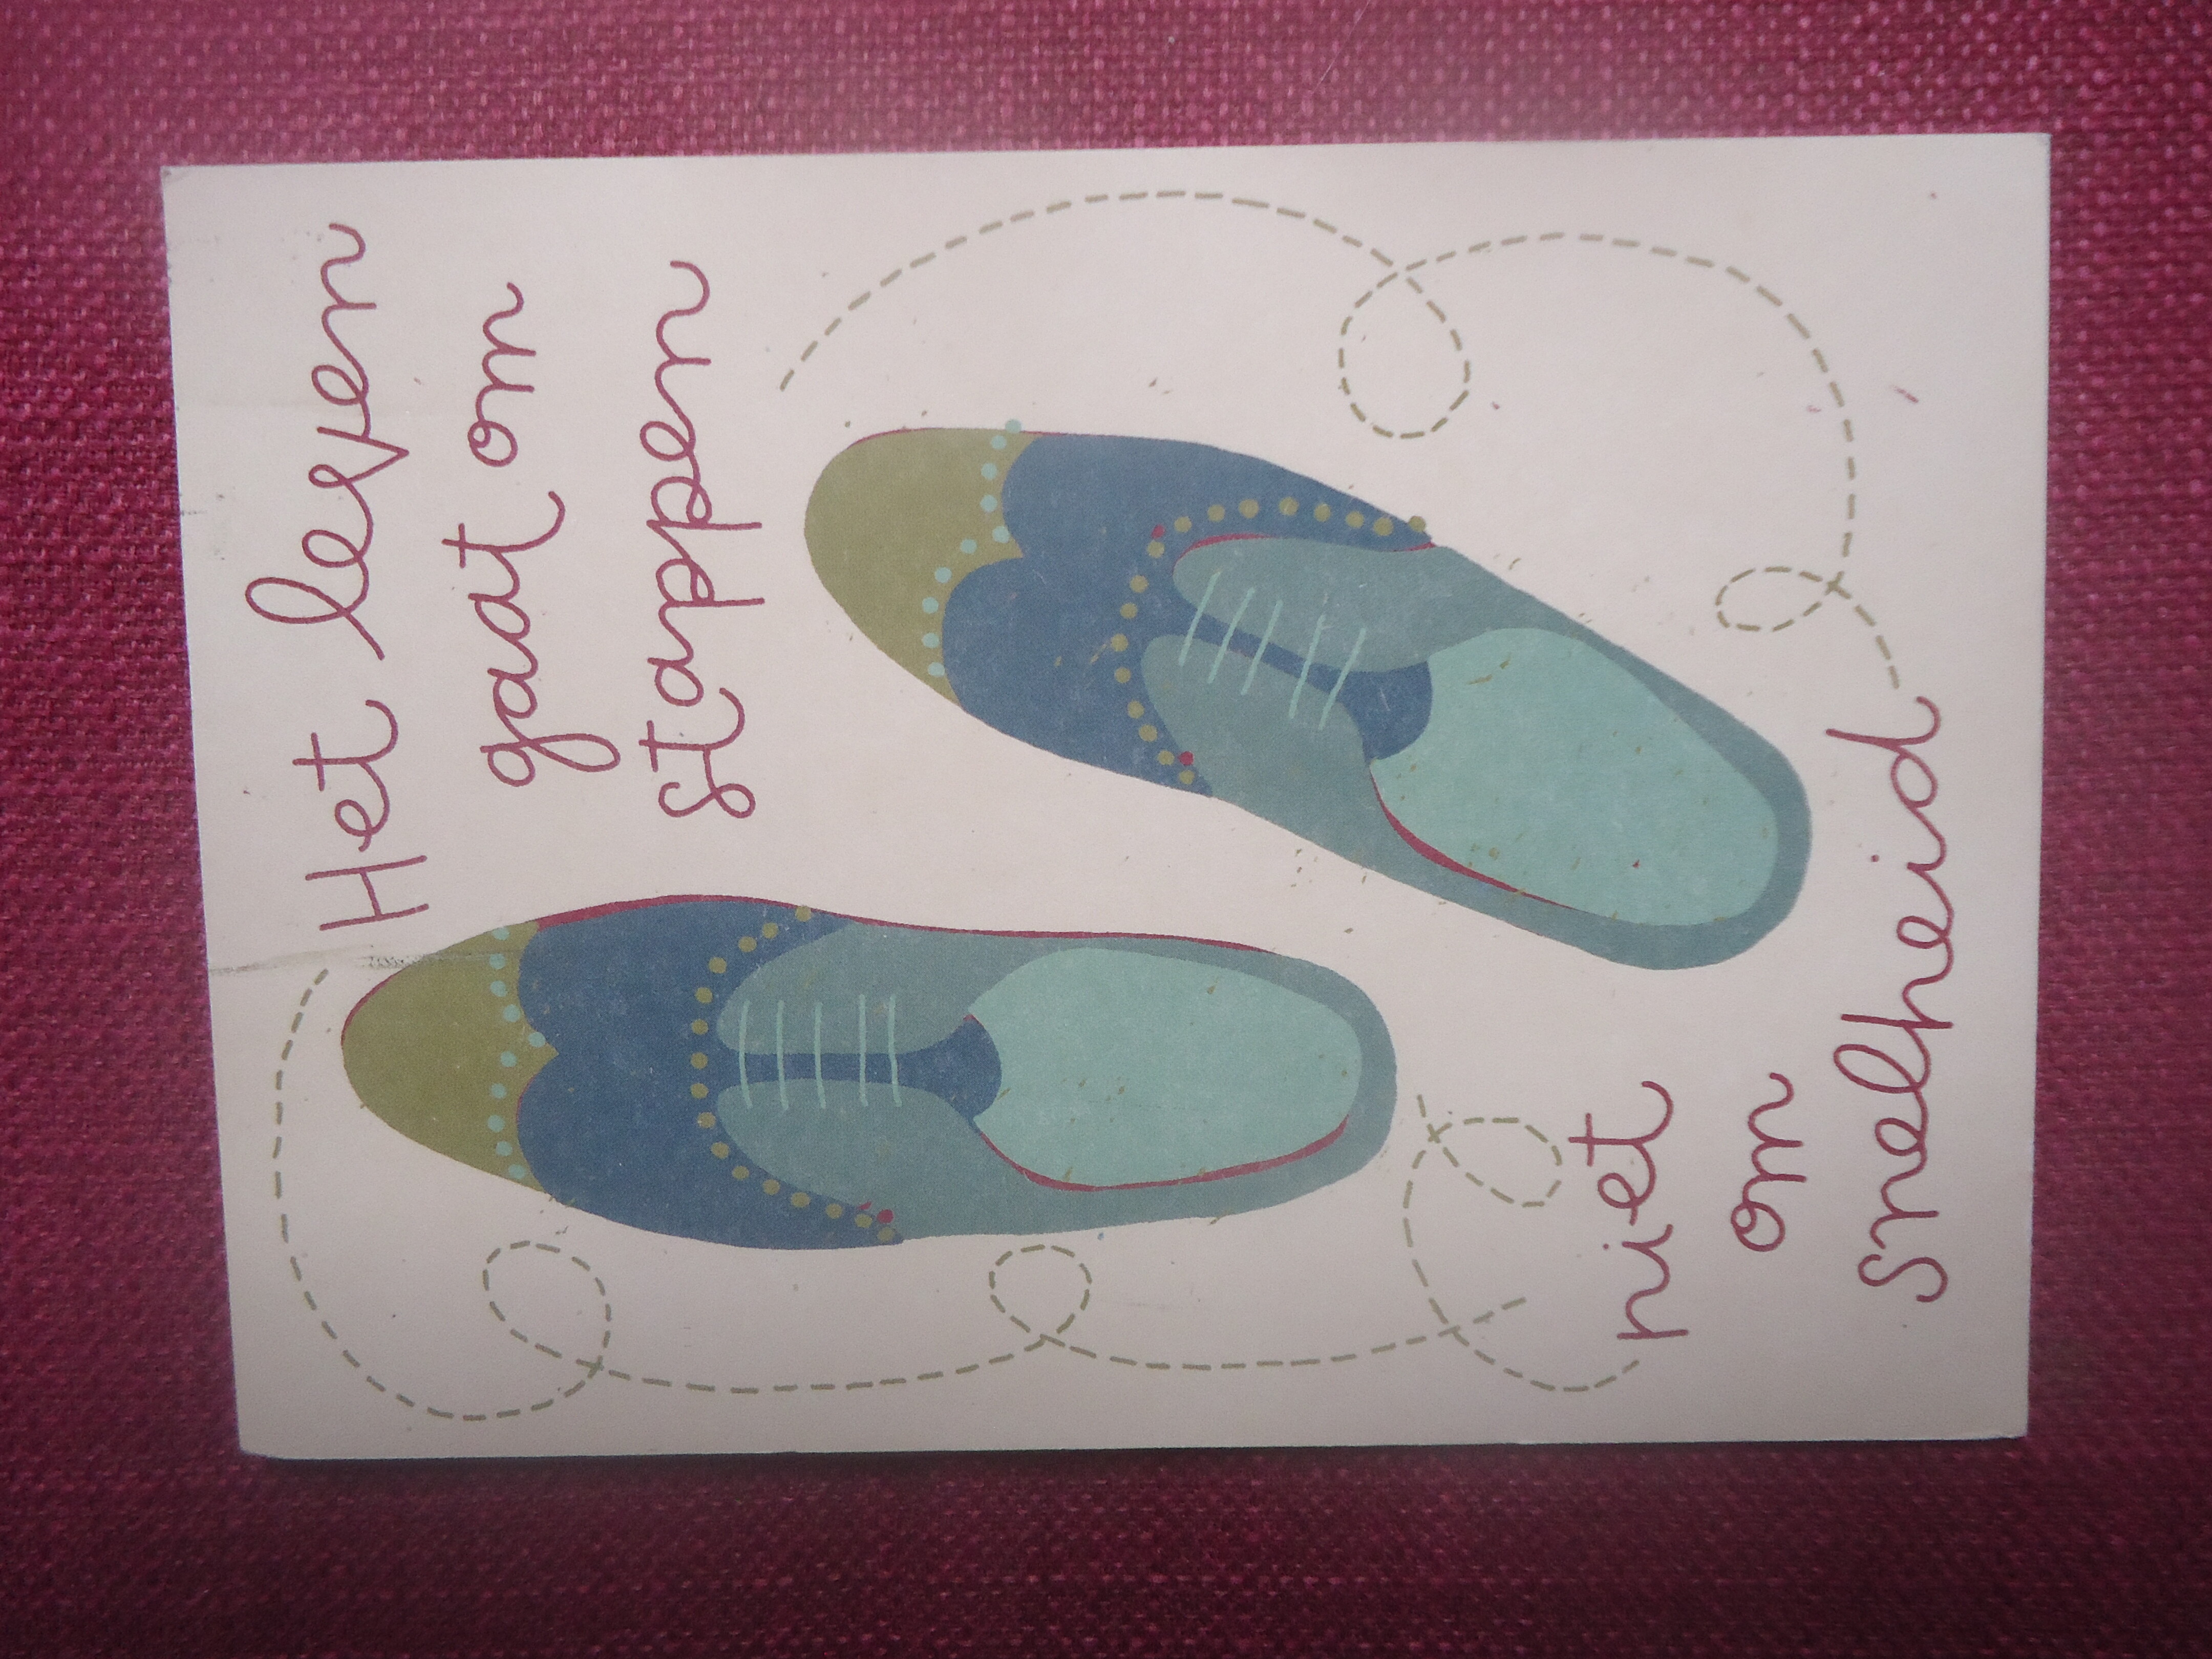 Het leven
gaat om
stappen
niet
om
snelheid